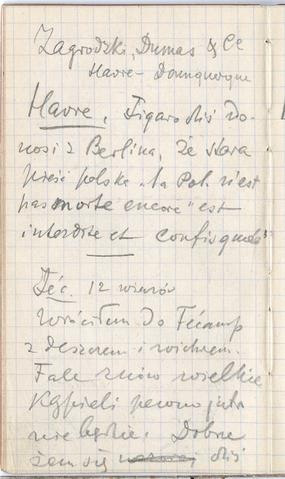 Zagrodzki, Dumas & Ce
Havre - Dounquerque
Havre. Figaro dziś do-
nosi z Berlina, że stara
pieśń polska "la Pol. n'est
pas morte encore" est
interdite et confisquée
Féc. 12 wieczór
Wróciłem do Fécamp
z deszczem i wichrem.
Fale znów wielkie
Kąpieli pewno jutro
nie będzie. Dobrze
żem się dziś